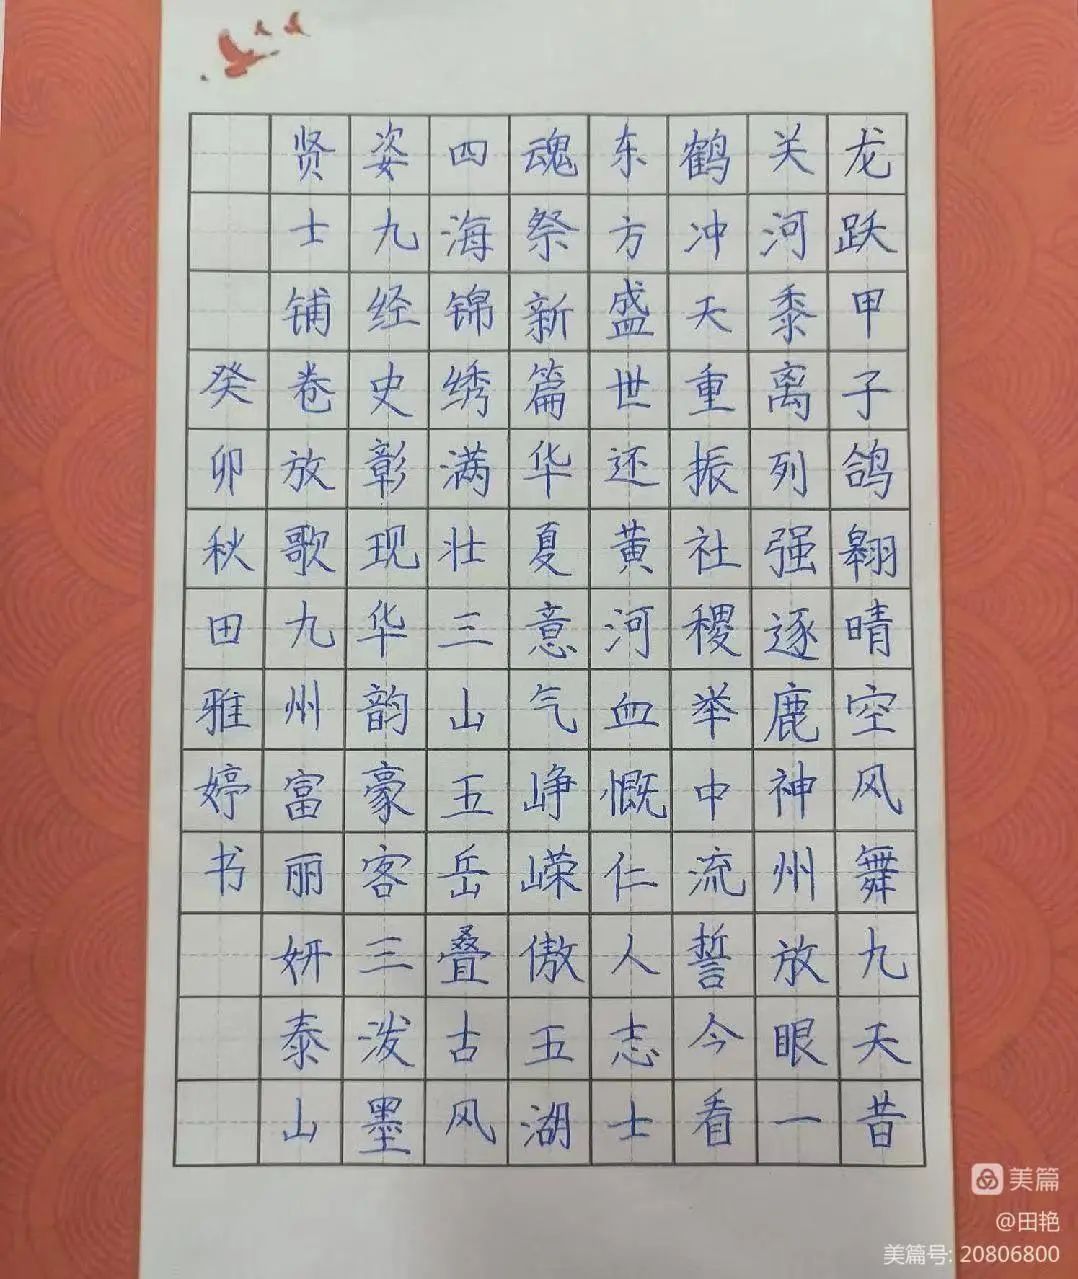 龙跃甲子鸽翱晴空风舞九天昔
关河黍离列强逐鹿神州放眼一
鹤冲天重振社稷举中流誓今看
东方盛世还黄河血慨仁人志士
魂祭新篇华夏意气峥嵘傲五湖
四海锦绣满壮三山五岳叠古风
姿九经史彰现华韵豪客三泼墨
贤士铺卷放歌九州富丽妍泰山
癸卯秋田雅婷书
美篇
@田艳
美篇号: 20806800